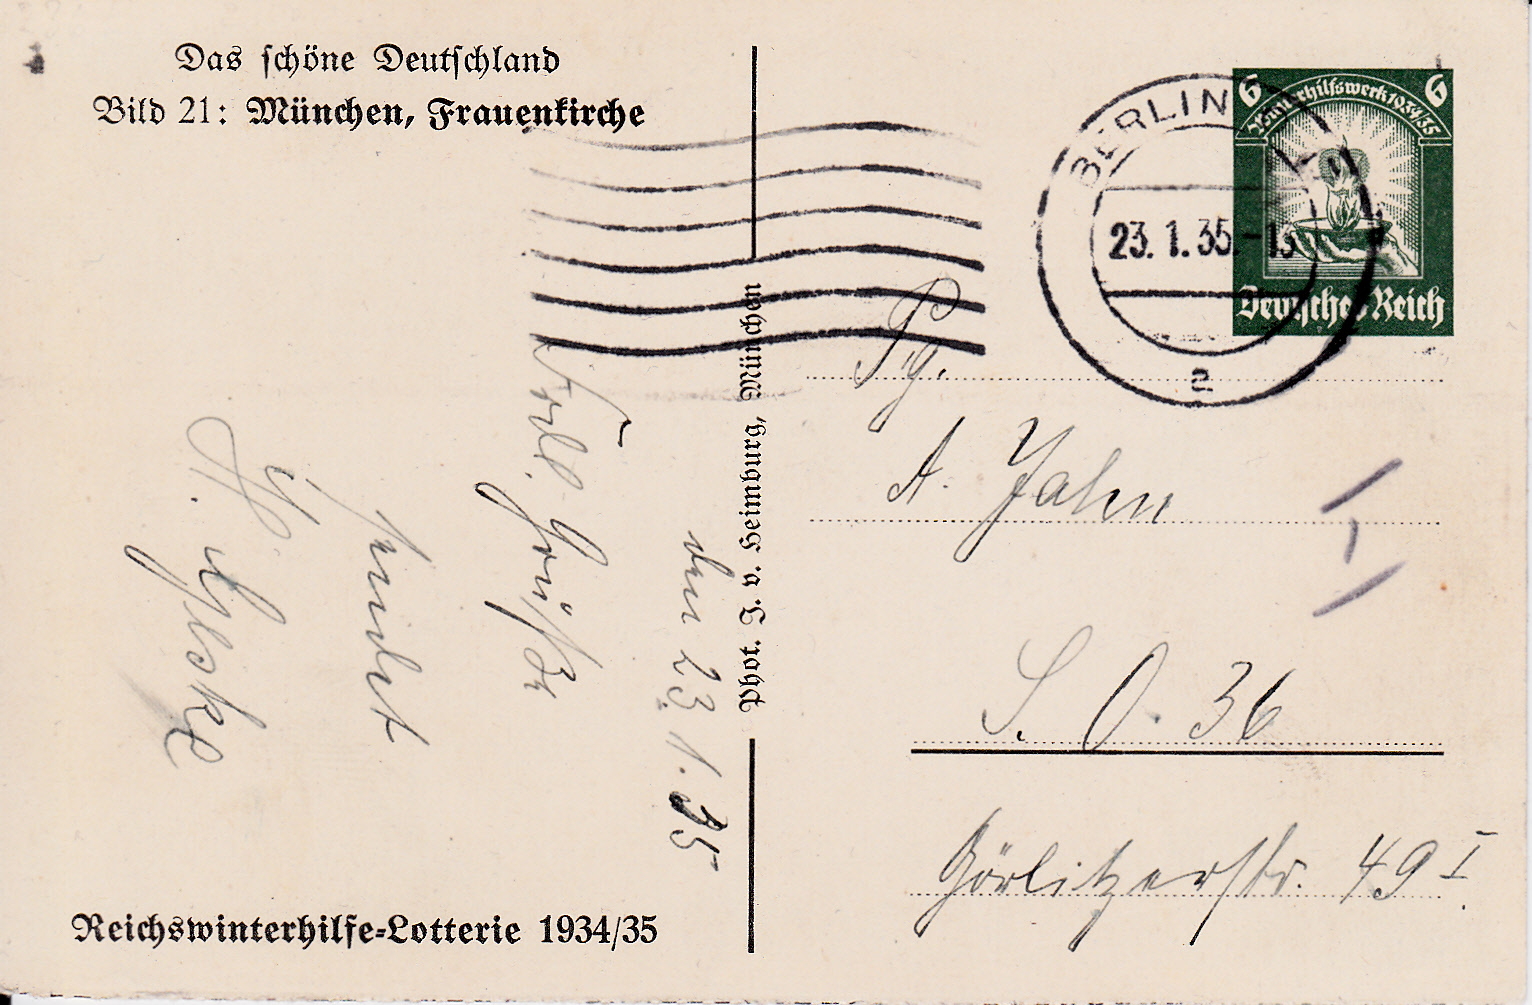 Das schöne Deutschland
Bild 21: München, Frauenkirche
6 6
Winterhilfswerk 1934/35
Deutsches Reich
BERLIN
23.1.35.-13
a
Phot. J. v. Heimburg, München
Pg.
A. Jahn
S. O. 36
Görlitzerstr. 49 I.
den 23.1.35
Grüße
sendet
Reichswinterhilfe-Lotterie 1934/35